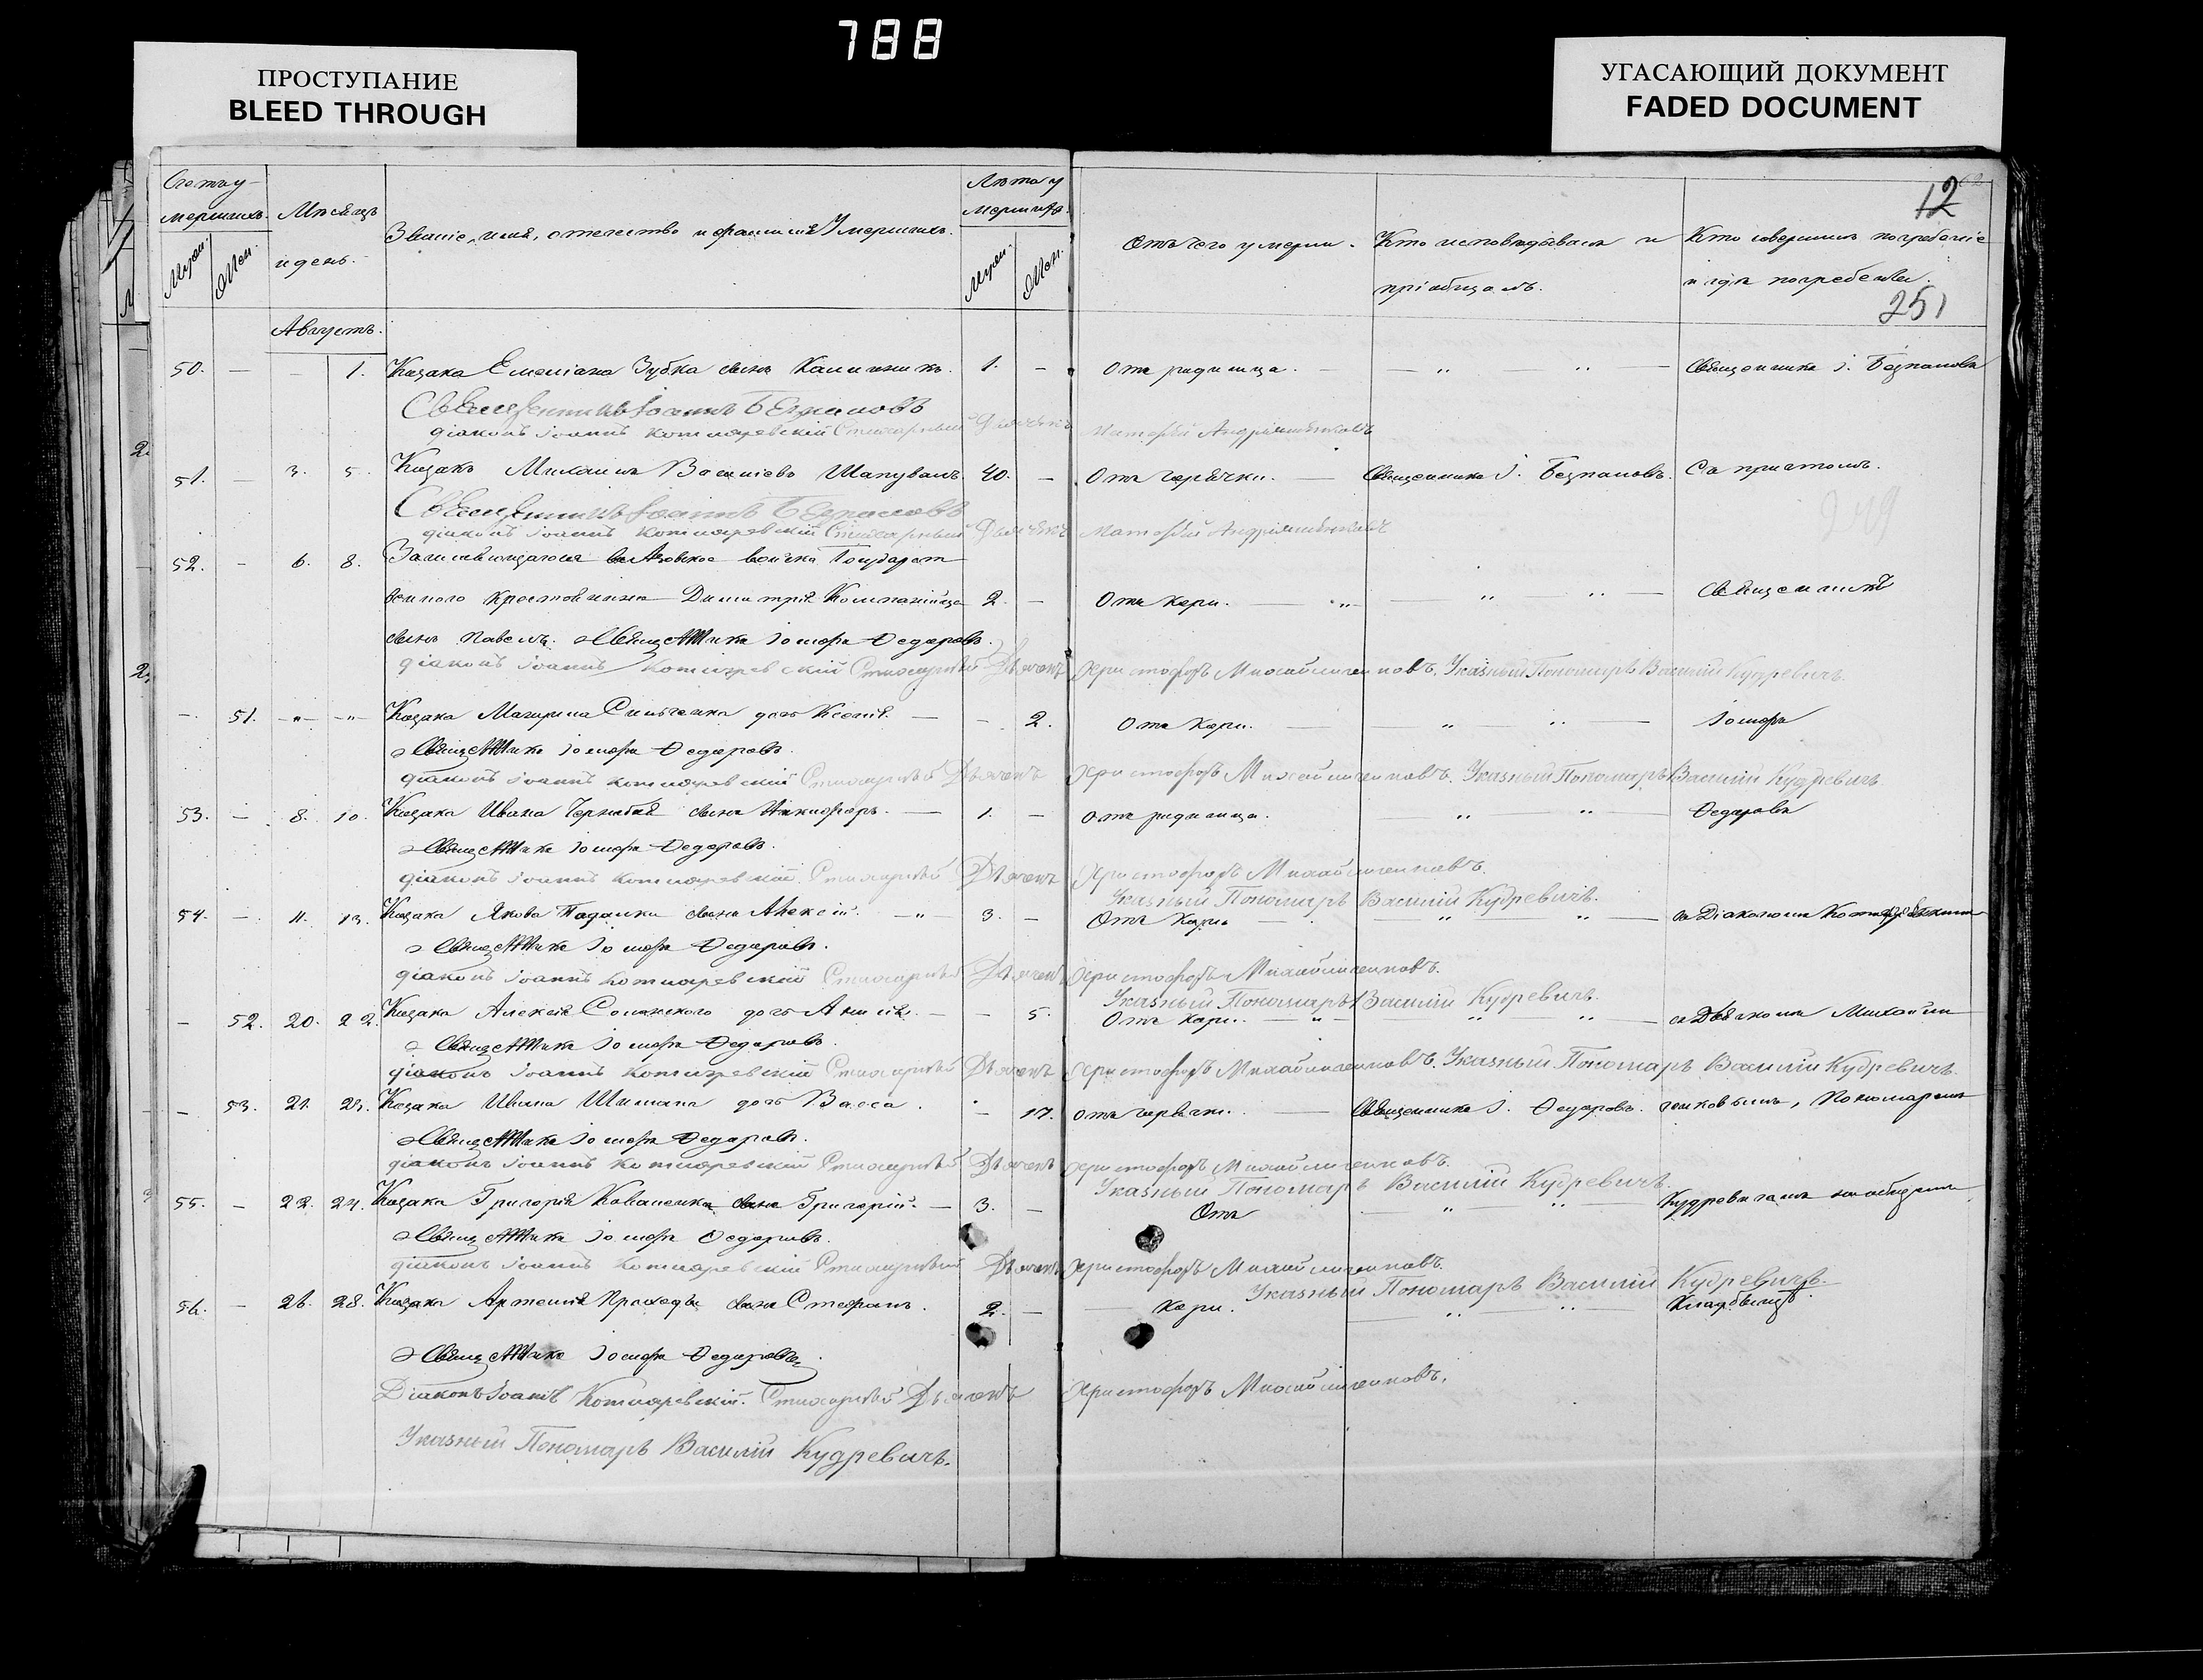 788
ПРОСТУПАНИЕ
BLEED THROUGH
УГАСАЮЩИЙ ДОКУМЕНТ
FADED DOCUMENT
12
Счетъ у-
мершихъ.
Муж.
Жен.
Мѣсяцъ
и день.
Званіе, имя, отчество и фамилія Умершихъ.
Лѣта у
мершаго.
Муж.
Жен.
Отъ чего умерли.
Кто исповѣдывалъ и
пріобщалъ.
Кто совершилъ погребеніе
и гдѣ погребены.
251
Августъ.
50. — — 1. Козака Емеліана Зубка сынъ Калинникъ. 1. — Отъ родимца. — „ „ — Священникъ І.
Священникъ Іоаннъ
діаконъ Іоаннъ Котляревскій Стихарный Дьячекъ
51. — 3. 5. Козакъ Михаилъ Шаповалъ. 40. — Отъ горячки. — Священникъ І. Съ причтомъ.
Священникъ Іоаннъ
діаконъ Іоаннъ Котляревскій Стихарный Дьячекъ
52. — 6. 8. Азовское войско Государст
веннаго крестьянина Димитрія 2. — Отъ кори. — „ — „ „ — Священникъ
сынъ Павелъ. Священникъ Іосифъ Федоровъ.
діаконъ Іоаннъ Котляревскій Стихарный Дьячекъ Христофоръ Михайличенковъ. Указный Пономарь Василій Кудревичъ.
— 51. „ „ Козака дочь Ксенія. — — 2. Отъ кори. — „ „ — Іосифъ
Священникъ Іосифъ Федоровъ.
діаконъ Іоаннъ Котляревскій Стихарный Дьячекъ Христофоръ Михайличенковъ. Указный Пономарь Василій Кудревичъ.
53. — 8. 10. Козака Ивана сынъ Никифоръ. — 1. — отъ родимца. — „ „ — Федоровъ
Священникъ Іосифъ Федоровъ.
діаконъ Іоаннъ Котляревскій Стихарный Дьячекъ Христофоръ Михайличенковъ.
Указный Пономарь Василій Кудревичъ.
54. — 11. 13. Козака Якова сынъ Алексій. — „ 3. — Отъ кори. — „ „ — съ Діакономъ Котляревскимъ
Священникъ Іосифъ Федоровъ.
діаконъ Іоаннъ Котляревскій Стихарный Дьячекъ Христофоръ Михайличенковъ.
Указный Пономарь Василій Кудревичъ.
— 52. 20. 22. Козака Алексія дочь — — 5. Отъ кори. — „ — „ „ — съ Дьячкомъ Михайли
Священникъ Іосифъ Федоровъ.
діаконъ Іоаннъ Котляревскій Стихарный Дьячекъ Христофоръ Михайличенковъ. Указный Пономарь Василій Кудревичъ.
— 53. 21. 23. Козака Ивана дочь Васса. — 17. отъ горячки. — Священникъ І. Федоровъ. ченковымъ, Пономаремъ
Священникъ Іосифъ Федоровъ.
діаконъ Іоаннъ Котляревскій Стихарный Дьячекъ Христофоръ Михайличенковъ.
Указный Пономарь Василій Кудревичъ.
55. — 22. 24. Козака Григорія Коваленка сынъ Григорій. — 3. — Отъ — „ „ — Кудревичемъ на общемъ
Священникъ Іосифъ Федоровъ.
діаконъ Іоаннъ Котляревскій Стихарный Дьячекъ Христофоръ Михайличенковъ.
Указный Пономарь Василій Кудревичъ.
56. — 26. 28. Козака Артемія сынъ Стефанъ. 2. — кори. — „ „ — Кладбищѣ.
Священникъ Іосифъ Федоровъ.
Діаконъ Іоаннъ Котляревскій. Стихарный Дьячекъ Христофоръ Михайличенковъ.
Указный Пономарь Василій Кудревичъ.